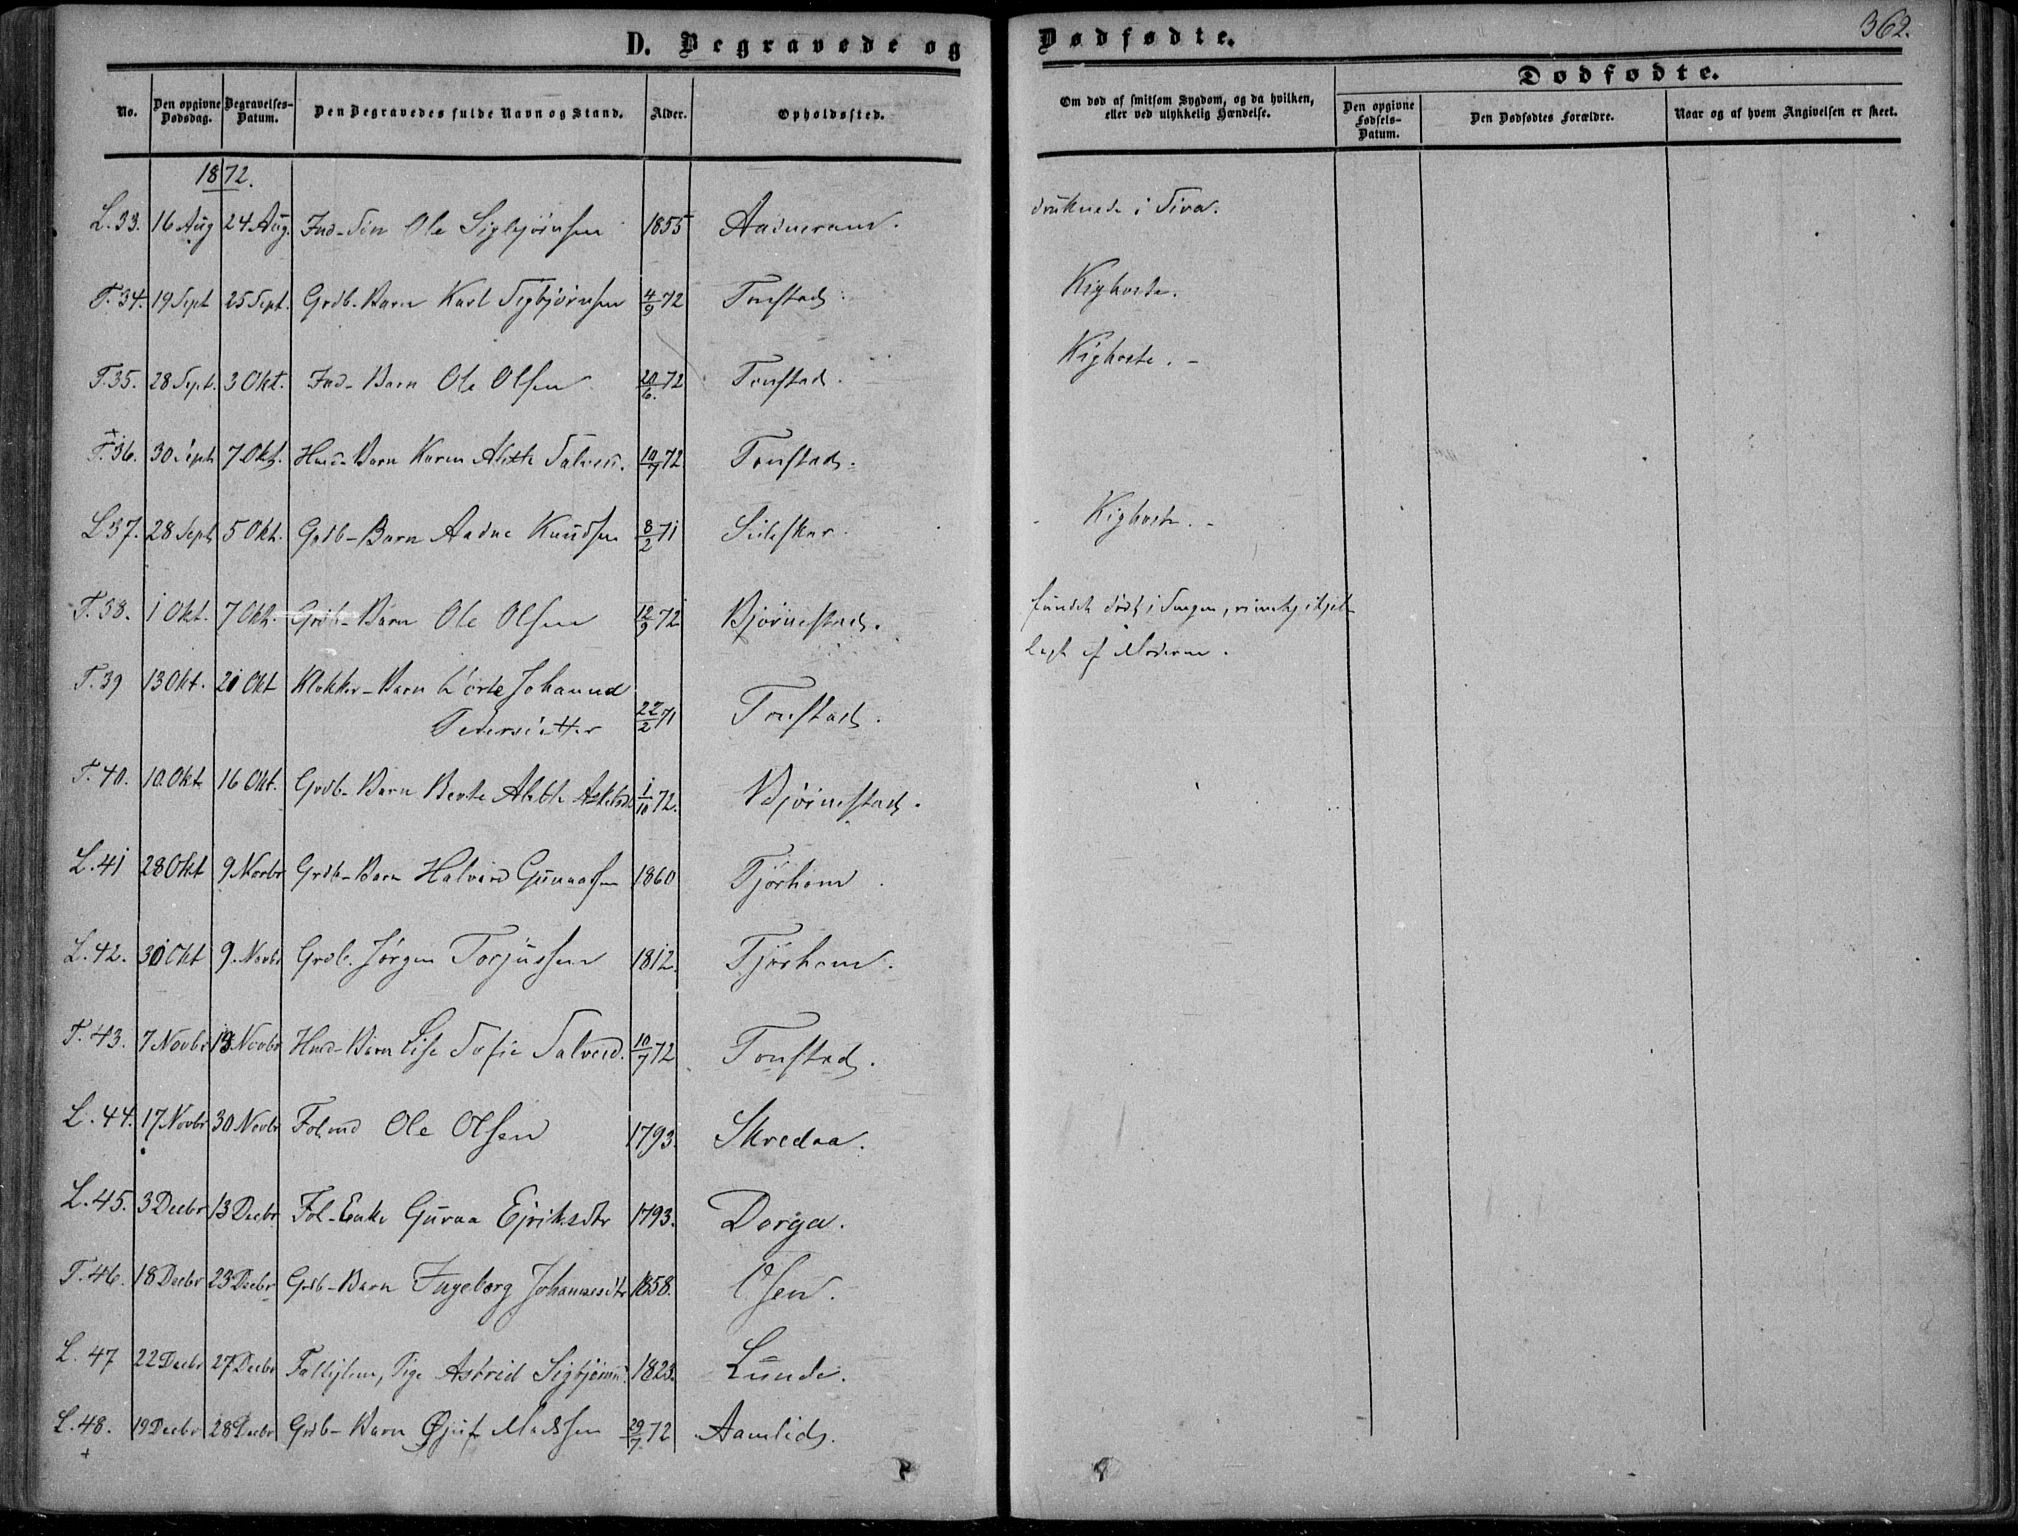 D. Begravede og Dødfødte. 362.
No. Den opgivne Dødsdag. Begravelses-Datum. Den Begravedes fulde Navn og Stand. Alder. Opholdssted. Om død af smitsom Sygdom, og da hvilken, eller ved ulykkelig Hændelse. Dødfødte. Den opgivne Fødsels-Datum. Den Dødfødtes Forældre. Naar og af hvem Angivelsen er skeet.
1872.
L. 33. 16 Aug 24 Aug. Ind-Søn Ole Sigbjørnsen 1855 Aadneram. druknede i Sira.
T. 34. 19 Sept 25 Sept. Grdb-Barn Karl Sigbjørnsen 4/9 72 Tonstad. Kighoste.
T. 35. 28 Sept. 3 Okt. Ind-Barn Ole Olsen 20/6. 72 Tonstad. Kighoste. -
T. 36. 30 Sept 7 Okt. Husm-Barn Karen Alethe Salves. 10/7 72 Tonstad.
L 37. 28 Sept 5 Okt. Grdb-Barn Aadne Knudsen 8/2 71 Sileskar. Kighoste. -
T. 38. 1 Okt. 7 Okt. Grdb-Barn Ole Olsen 12/9 72 Bjørnestad. fundet død i Sengen, ihjel-
lagt af Moderen.
T. 39 13 Okt. 21 Okt Klokker-Barn Johanne
Pedersdatter 22/2 71 Tonstad.
T. 40. 10. Okt 16 Okt. Grdb-Barn Berte Alethe 1/10 72. Bjørnestad.
L. 41 28 Okt 9 Novbr Grdb-Barn Halvard Gunnarsen 1860 Tjørhom.
L. 42. 30 Okt 9. Novbr Grdb. Jørgen Torjussen 1812. Tjørhom.
T. 43. 7 Novbr 13 Novbr Husm-Barn Lise Sofie Salvesd. 10/7 72 Tonstad.
L. 44. 17 Novbr 30 Novbr Folmd Ole Olsen 1793. Skredaa.
L. 45. 3 Decbr 13 Decbr Fol-Enke Guraa Ejriksdtr 1793. Dorga.
T. 46. 18 Decbr 23 Decbr Grdb-Barn Ingeborg Johannesdtr 1858. Osen.
L. 47 22 Decbr 27 Decbr Fattiglem, Pige Astrid Sigbjørnsd. 1823. Lunde.
L. 48. 19 Decbr 28 Decbr Grdb-Barn Øjuf Madssen 29/7 72 Aamlid.